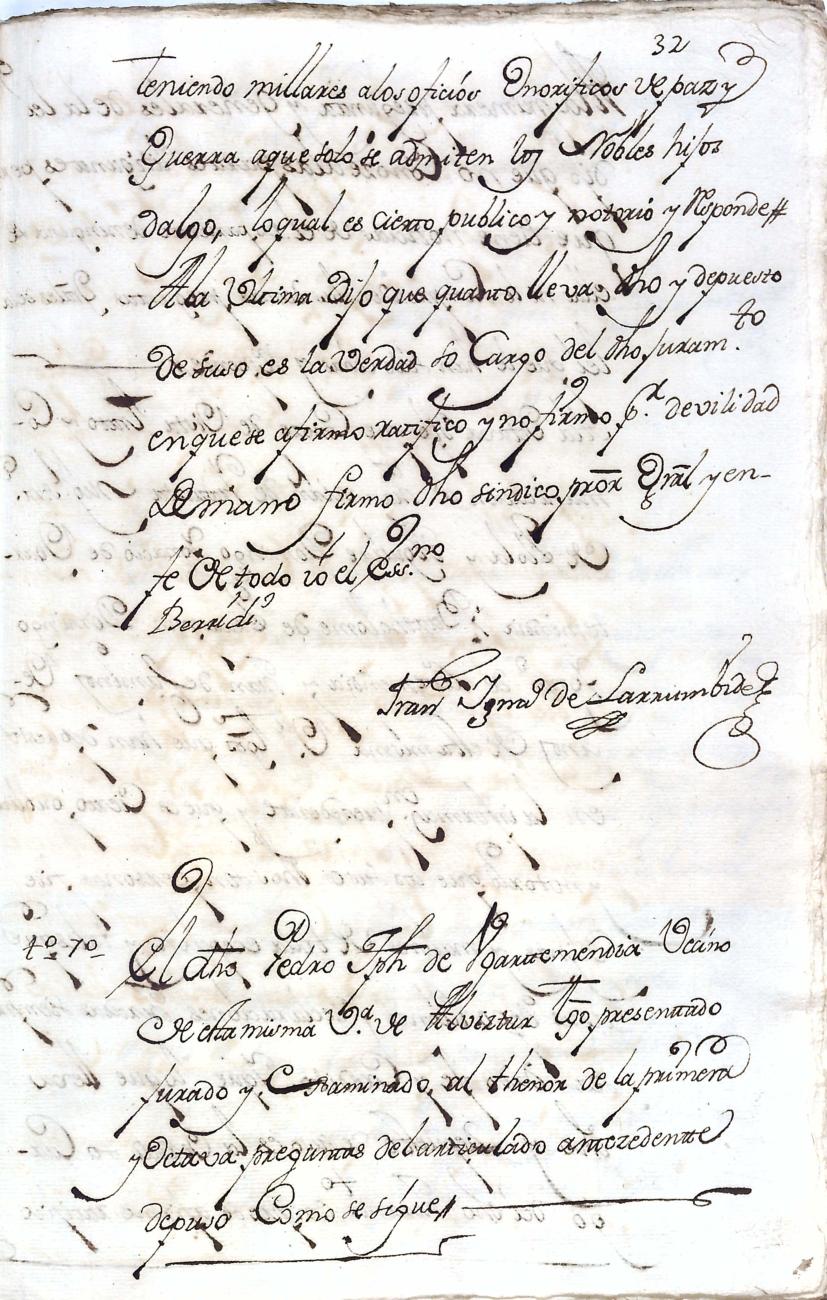 32
teniendo millares a los oficiós Enorificos de paz y
Guerra aque solo se admiten los Nobles hijos
dalgo, lo qual es cierto publico y notorio y Responde
A la Ultima Dijo que quanto lleva dho y depuesto
De suso es la Verdad so Cargo del dho juram.to
en que se afirmo ratifico y no firmo p.r devilidad
De mano firmo dho sindico pror Gral y en-
fe De todo ió el Ess.no
Fran.co Ygna.o de Larrumbide
4º 70
El dho Pedro Jph de Ugartemendia Vecino
de esta misma V.a de Alviztur tgo presentado
jurado y Examinado al thenor de la primera
y Octava preguntas del articulado antezedente
depuso Como se sigue